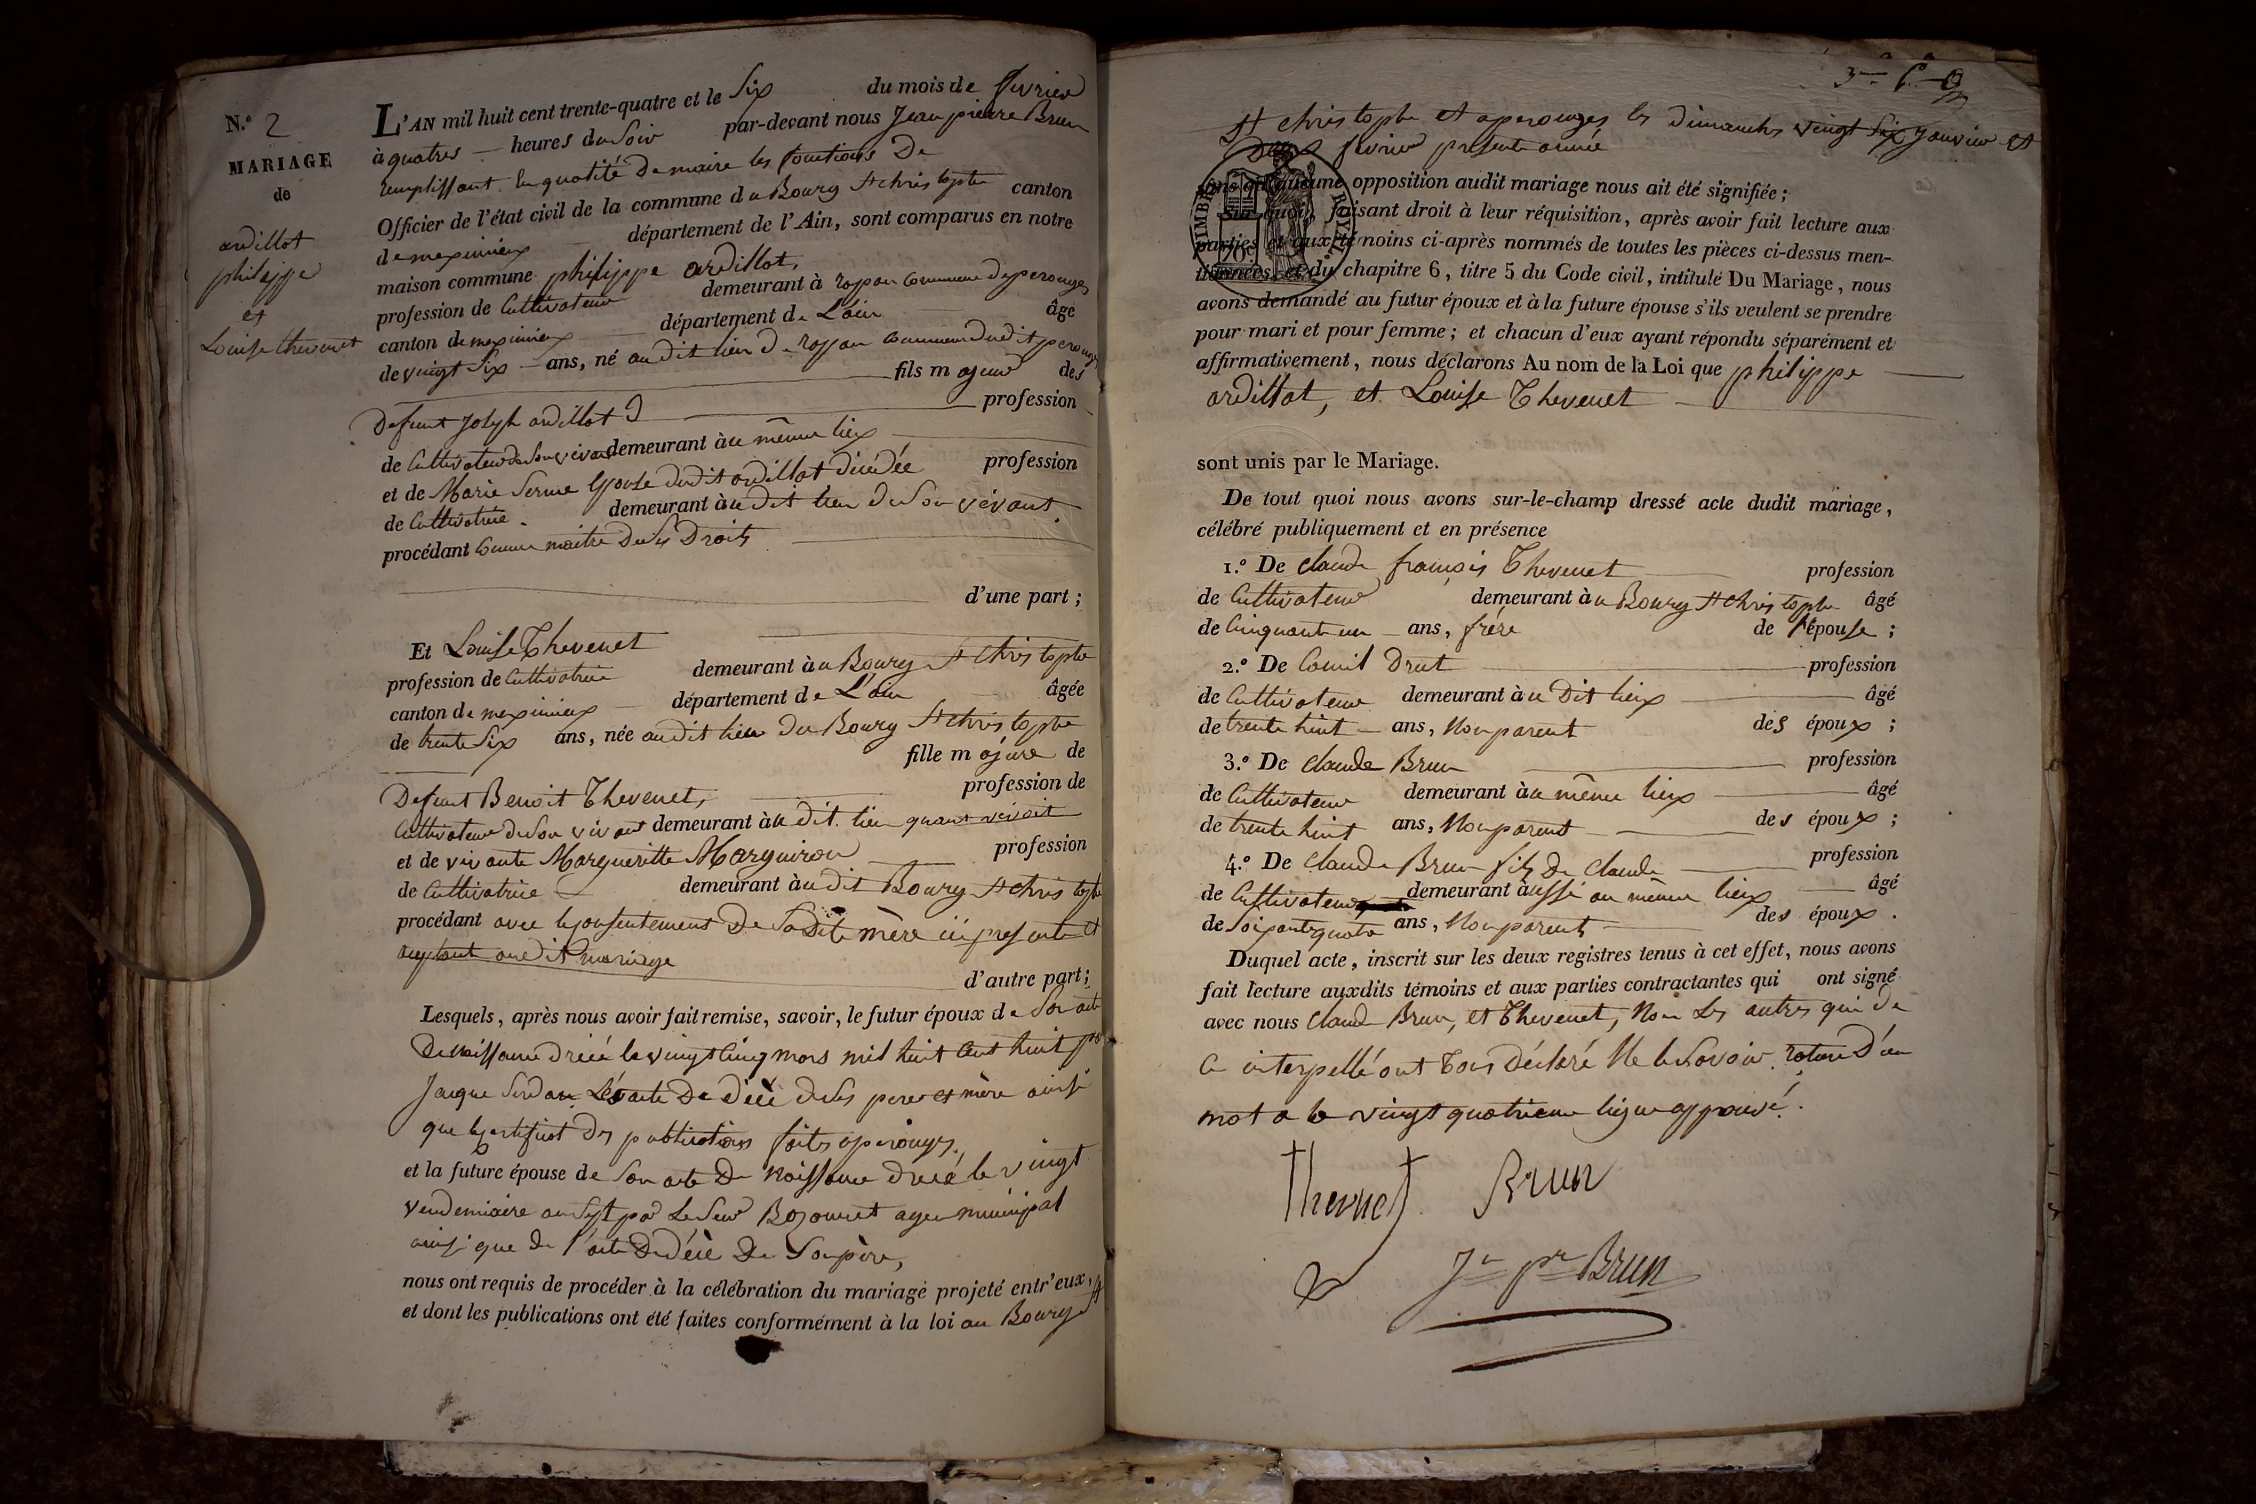 N.º 2
MARIAGE
de
ardillot
philippe
et
Louise thevenet
L'AN mil huit cent trente-quatre et le Six du mois de fevrier
à quatres heures du Soir par-devant nous Jean pierre Brun
remplissant En qualité De maire les fonctions De
Officier de l'état civil de la commune du Bourg St christophe canton
de meximieux département de l'Ain, sont comparus en notre
maison commune philippe ardillot,
profession de Cultivateur demeurant à rapan Commune De perouges
canton de meximieux département de L'ain âgé
de vingt Six ans, né audit lieu De rapan Commune dudit perouges
fils majeur des
Defunt Joseph ardillot profession
de Cultivateur de Son vivant demeurant au même lieu
et de Marie Serme Epouse dudit ardillot décédée profession
de Cultivatrice demeurant au Dit lieu De Son vivant.
procédant Comme maitre De Ses Droits
d'une part ;
Et Louise Thevenet
profession de Cultivatrice demeurant au Bourg St christophe
canton de meximieux département de L'ain âgée
de trente Six ans, née audit lieu du Bourg St christophe
fille majeure de
Defunt Benoit Thevenet, profession de
Cultivateur de Son vivant demeurant au dit lieu quant vivoit
et de vivante Margueritte Marguiron profession
de Cultivatrice demeurant audit Bourg St christophe
procédant avec le Consentement De Sa Dite mère ici presente et
acceptant audit mariage
d'autre part ;
Lesquels, après nous avoir fait remise, savoir, le futur époux de Son acte
De naissance le vingt Cinq mars mil huit Cent huit par
Jacque acte De De Ses pere et mère ainsi
que Certificat Des publications faites a perouges.
et la future épouse de Son acte De naissance le vingt
vendemiaire an Sept par Le Sieur agen municipal
ainsi que De l'acte De Décè De Son père,
nous ont requis de procéder à la célébration du mariage projeté entr'eux,
et dont les publications ont été faites conformément à la loi au Bourg
St christophe et a perouges les dimanches vingt Six janvier et
Deux fevrier presente année
sans qu'aucune opposition audit mariage nous ait été signifiée ;
Sur quoi, faisant droit à leur réquisition, après avoir fait lecture aux
parties et aux témoins ci-après nommés de toutes les pièces ci-dessus men-
tionnées, et du chapitre 6, titre 5 du Code civil, intitulé Du Mariage, nous
avons demandé au futur époux et à la future épouse s'ils veulent se prendre
pour mari et pour femme ; et chacun d'eux ayant répondu séparément et
affirmativement, nous déclarons Au nom de la Loi que philippe
ardillot, et Louise Thevenet
sont unis par le Mariage.
De tout quoi nous avons sur-le-champ dressé acte dudit mariage,
célébré publiquement et en présence
1.º De claude françois Thevenet profession
de Cultivateur demeurant au Bourg St christophe âgé
de Cinquante un ans, frére de l'épouse ;
2.º De Camil Drut profession
de Cultivateur demeurant au Dit lieu âgé
de trente huit ans, Non parent des époux ;
3.º De claude Brun profession
de Cultivateur demeurant au même lieu âgé
de trente huit ans, Non parent des époux ;
4.º De claude Brun fils De claude profession
de Cultivateur demeurant aussi au même lieu âgé
de Soixante quatre ans, Non parents des époux.
Duquel acte, inscrit sur les deux registres tenus à cet effet, nous avons
fait lecture auxdits témoins et aux parties contractantes qui ont signé
avec nous claude Brun, et Thevenet, Non Les autres qui De
Ce interpellé ont tous déclaré Ne le Savoir. rature D'un
mot a la vingt quatrieme ligne approuvé.
Thevenet Brun
Jn pre Brun
TIMBRE ROYAL